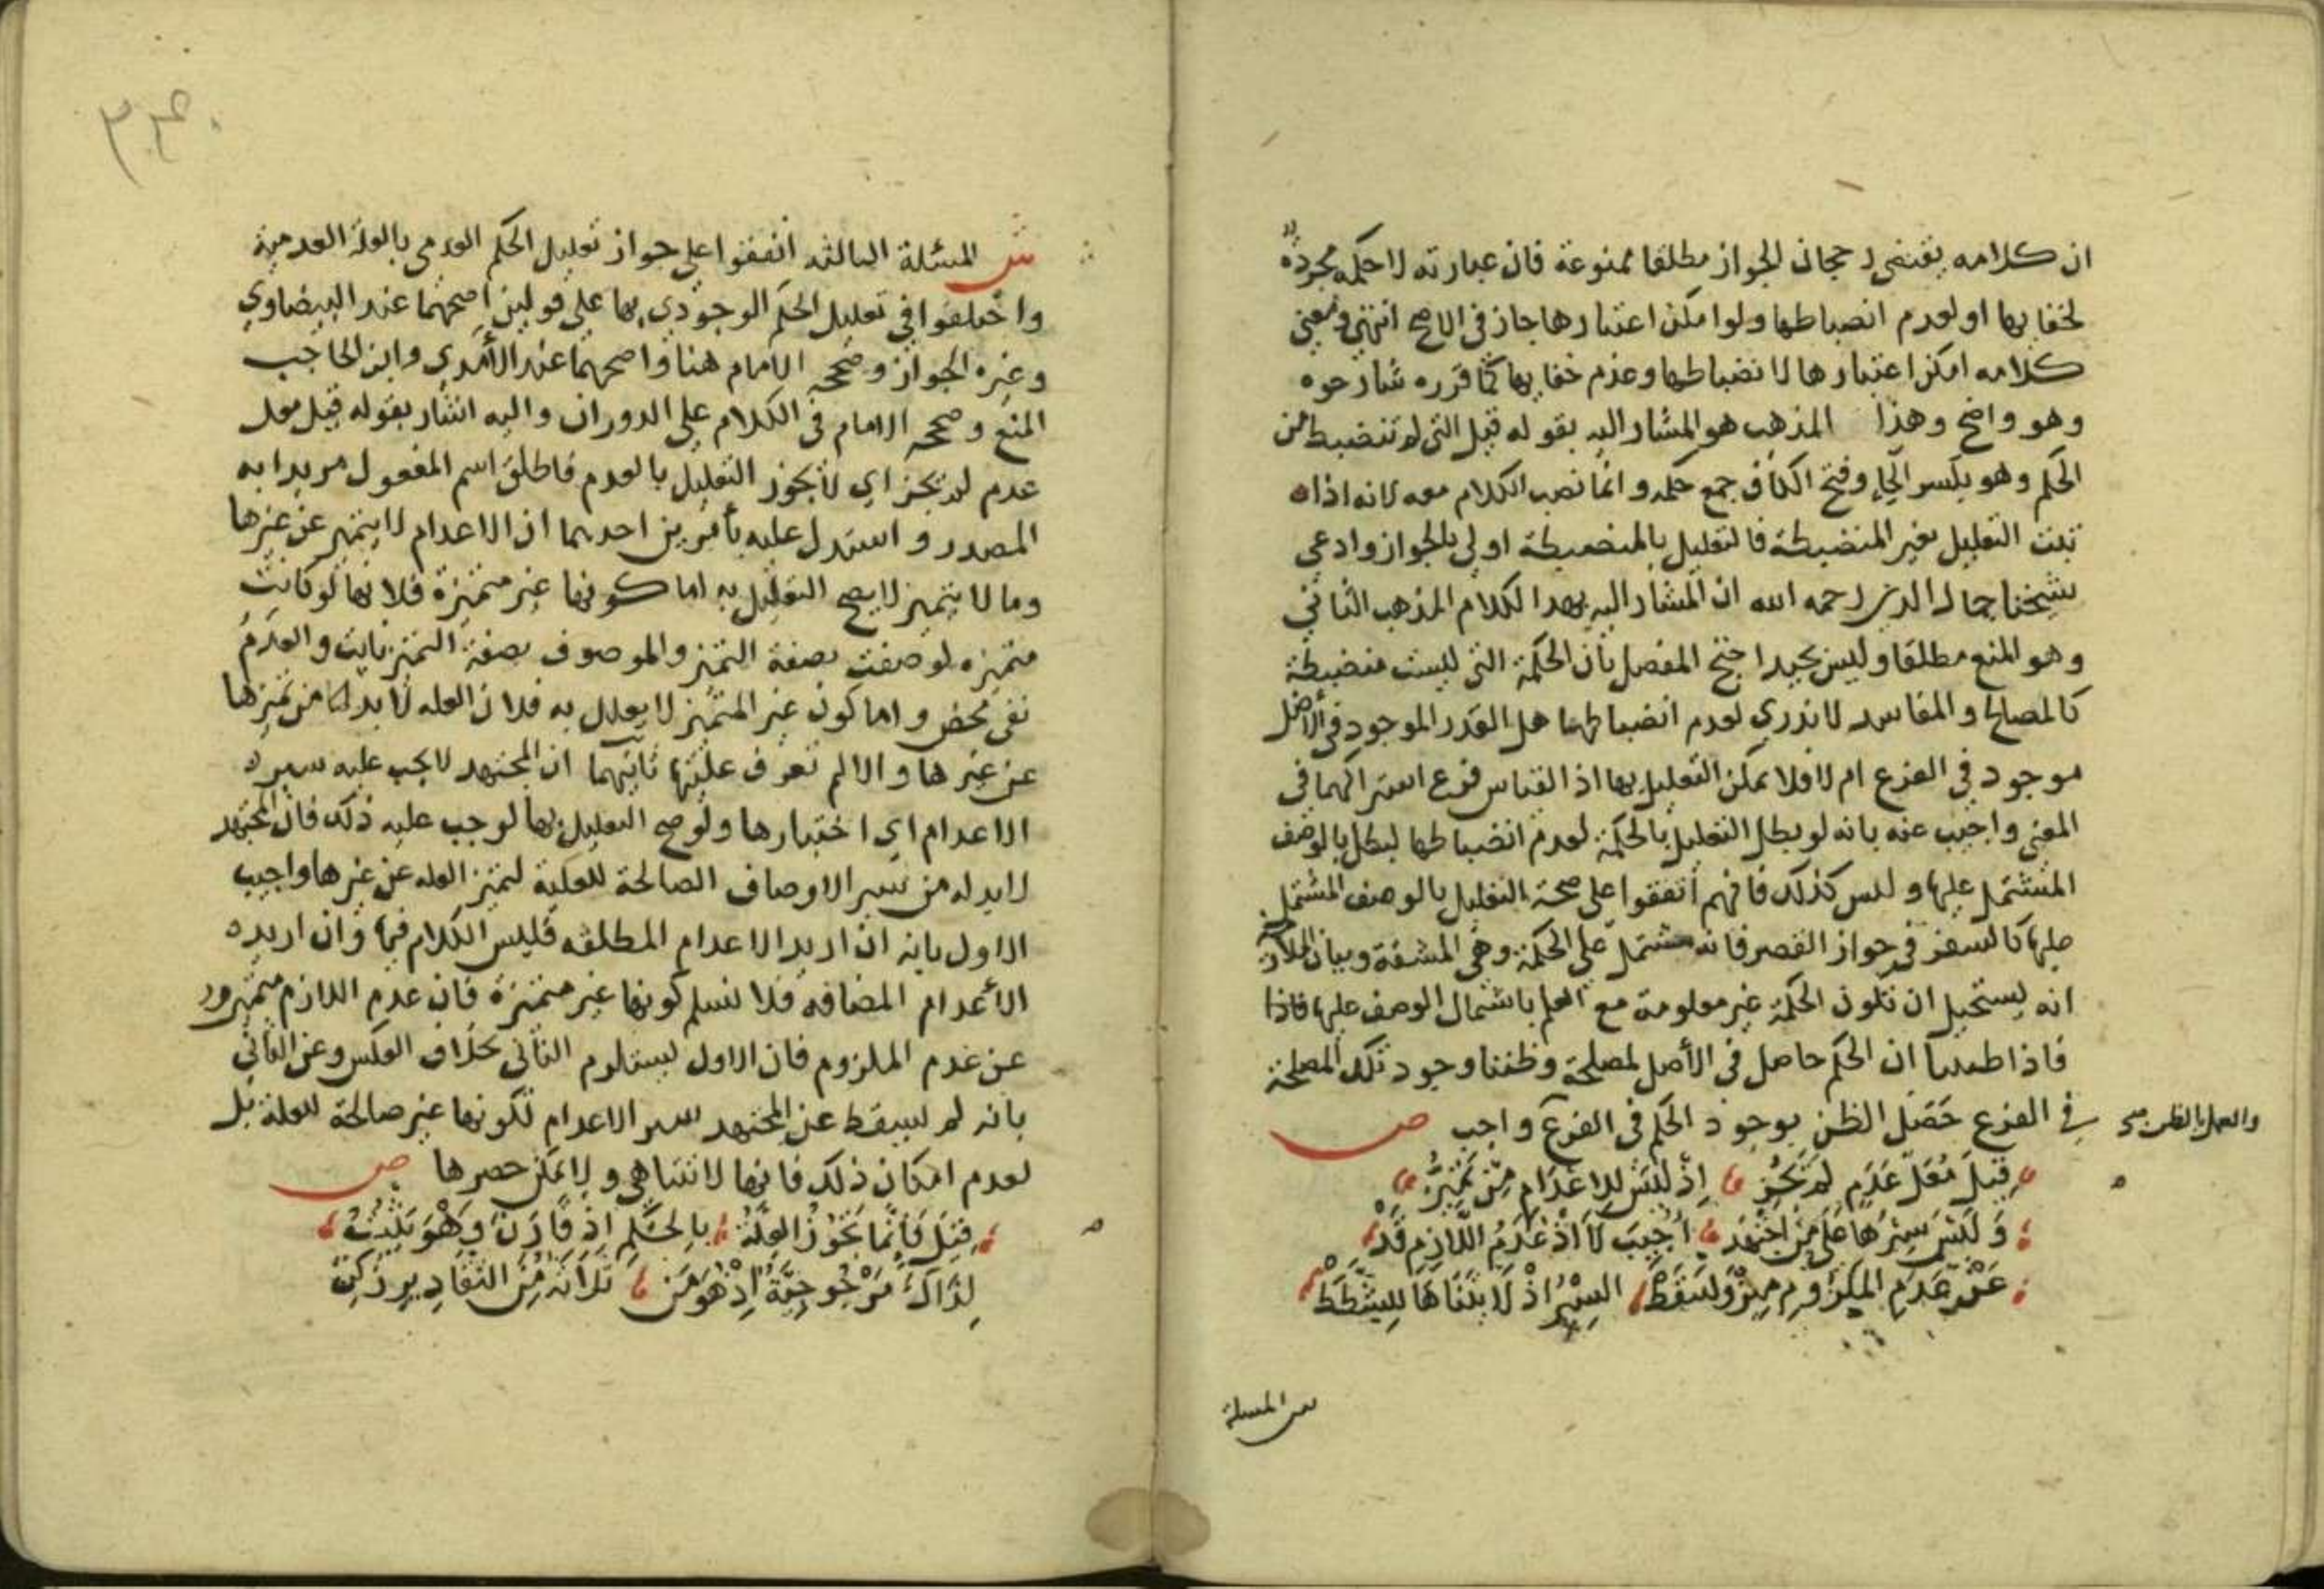 ان كلامه يقتضي رجحان الجواز مطلقا ممنوعة فان عبارته لا حكمة مجردة
لخفايها او لعدم انضباطها ولو امكن اعتبارها جاز في الاصح انتهى ومعنى
كلامه امكن اعتبارها لانضباطها وعدم خفايها كما قرره شارحوه
وهو واضح وهذا المذهب هو المشار اليه بقوله قيل التي لم تنضبط من
الحكم وهو بكسر الحاء وفتح الكاف جمع حكمة وانما نصب الكلام معه لانه اذا
ثبت التعليل بغير المنضبطة فالتعليل بالمنضبطة اولى بالجواز وادعى
شيخنا جمال الدين رحمه الله ان المشار اليه بهذا الكلام المذهب الثاني
وهو المنع مطلقا وليس بجيد احتج المفصل بأن الحكمة التي ليست منضبطة
كالمصالح والمفاسد لا ندري لعدم انضباطها هل القدر الموجود في الأصل
موجود في الفرع ام لا فلا يمكن التعليل بها اذ القياس فرع اشتراكهما في
المعنى واجيب عنه بانه لو بطل التعليل بالحكمة لعدم انضباطها لبطل بالوصف
المشتمل عليها وليس كذلك فانهم اتفقوا على صحة التعليل بالوصف المشتمل
عليها كالسفر في جواز القصر فانه مشتمل على الحكمة وهي المشقة وبيان الملازمة
انه يستحيل ان تكون الحكمة غير معلومة مع العلم باشتمال الوصف عليها فاذا
فاذا ظننا ان الحكم حاصل في الأصل لمصلحة وظننا وجود تلك المصلحة
في الفرع حَصَل الظن بوجود الحكم في الفرع واجب ص
والعمل بالظن
قِيلَ مُعَلّ عَدَمٍ لم يَجُزِ اِذْ ليْسَ للاعْدَامِ مِنْ تَمَيُّزِ
وَلَيْسَ سَبْرُهَا عَلَى مَنْ اجْتَهَدْ اُجِيبَ لَا اذْ عَدَمُ اللَّازِمِ قَدْ
عَنْ عَدَمِ المَلزُومِ مِيزْ وَلسَقَطْ السبْرُ اذْ لَا يتَنَاهَا للِشَّطَطْ
ش المسئلة
ش المسئلة الثالثة اتفقوا على جواز تعليل الحكم العدمي بالعلة العدمية
واختلفوا في تعليل الحكم الوجودي بها على قولين اصحهما عند البيضاوي
وغيره الجواز وصححه الامام هنا واصحهما عند الآمدي وابن الحاجب
المنع وصححه الامام في الكلام على الدوران واليه اشار بقوله قيل معل
عدم لم يجز اي لا يجوز التعليل بالعدم فاطلق اسم المفعول مريدا به
المصدر واستدل عليه بأمرين احدهما ان الاعدام لا يتميز عن غيرها
وما لا يتميز لا يصح التعليل به اما كونها غير متميزة فلانها لو كانت
متميزه لوصفت بصفة التميز والموصوف بصفة التميز ثابت والعدم
نفي محض واما كون غير المتميز لا يعلل به فلان العله لا بد لها من تميزها
عن غيرها والا لم تعرف عليتها ثانيهما ان المجتهد لا يجب عليه سبر
الاعدام اي اختبارها ولو صح التعليل بها لوجب عليه ذلك فان المجتهد
لا بد له من سبر الاوصاف الصالحة للعلية لتميز العله عن غيرها واجيب
الاول بانه ان اريد الاعدام المطلقه فليس الكلام فيها وان اريد
الأعدام المضافه فلا نسلم كونها غير متميزة فان عدم اللازم متميز
عن عدم الملزوم فان الاول يستلزم الثاني بخلاف العكس وعن الثاني
بانه لم يسقط عن المجتهد سبر الاعدام لكونها غير صالحة للعلة بل
لعدم امكان ذلك فانها لا تتناهى ولا يمكن حصرها ص
قِيلَ فَاِنَّمَا يَجُوزُ العِلّةُ بالحكْمِ اذْ قَارَنَ وَهْوَ يَثْبُتُ
لِذَاكَ مَرْجُوحِيَّةٌ اِذْ هُوَ مِن ثَلَاثَة مِنَ التقَادِيرِ زكِنْ